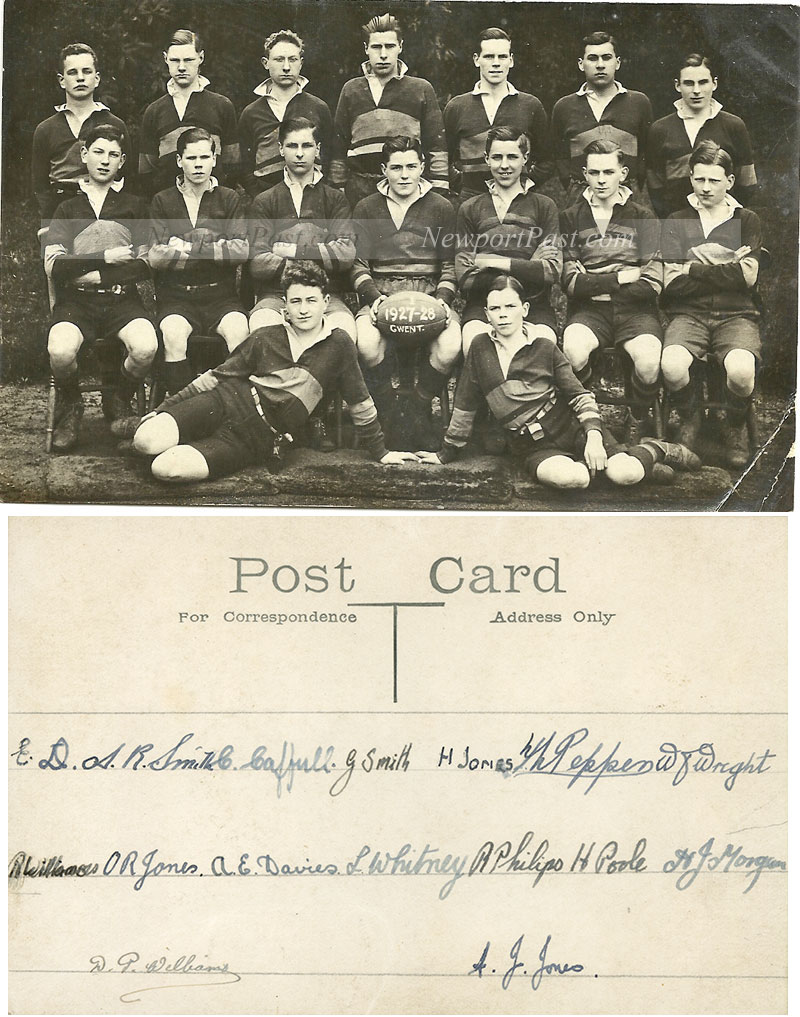 NewportPast.com NewportPast.com
1
1927-28
GWENT.
Post Card
For Correspondence Address Only
E. D. S. R. Smith C. Caffull. G Smith H Jones Peppen W J Wright
R Williams O R Jones. A. E. Davies. L Whitney R Philips H Poole H J Morgan
D. P. Williams A. J. Jones.